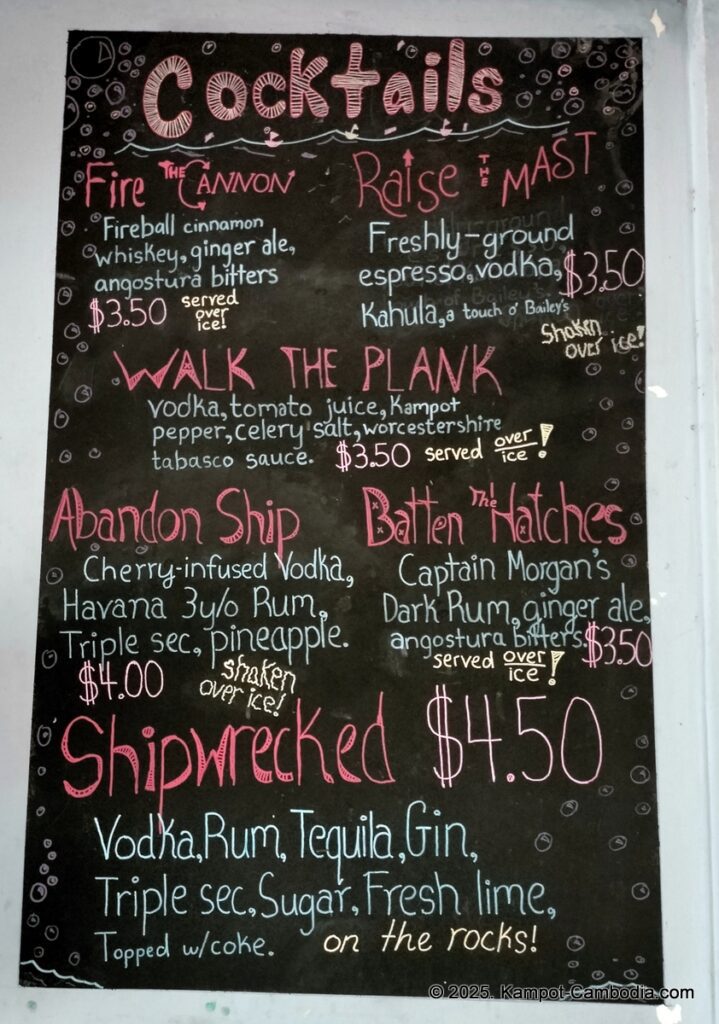 Cocktails
Fire THE CANNON
Fireball cinnamon
whiskey, ginger ale,
angostura bitters
$3.50 served
over
ice!
Raise THE MAST
Freshly-ground
espresso, vodka, $3.50
Kahula, a touch o' Bailey's
Shaken
over ice!
WALK THE PLANK
vodka, tomato juice, Kampot
pepper, celery salt, worcestershire
tabasco sauce. $3.50 served over
ice!
Abandon Ship
Cherry-infused Vodka,
Havana 3y/o Rum,
Triple sec, pineapple.
$4.00 shaken
over ice!
Batten The Hatches
Captain Morgan's
Dark Rum, ginger ale,
angostura bitters. $3.50
served over
ice!
Shipwrecked $4.50
Vodka, Rum, Tequila, Gin,
Triple sec, Sugar, Fresh lime,
Topped w/coke. on the rocks!
© 2025. Kampot-Cambodia.com